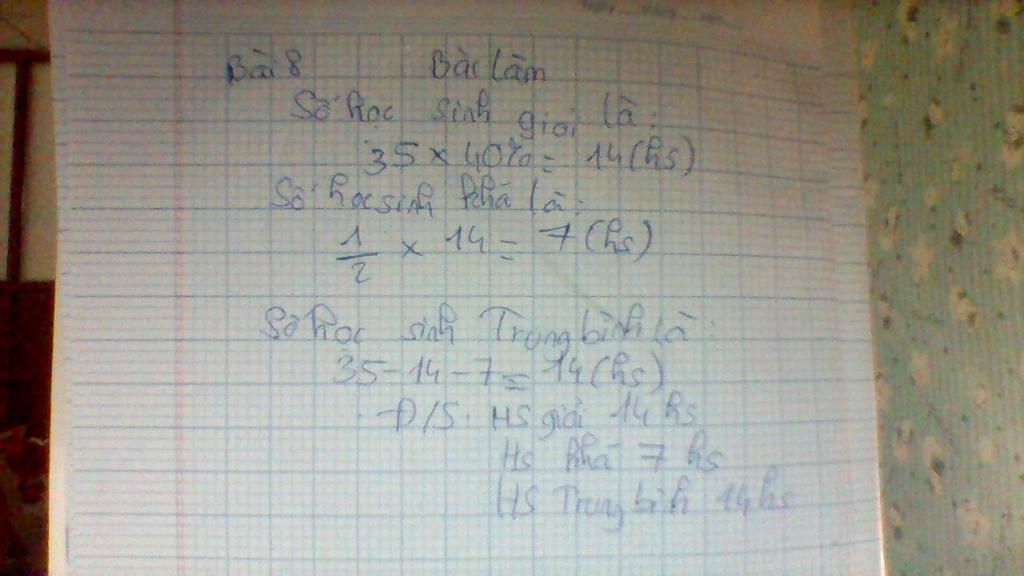 Bài 8 Bài làm
Số học sinh giỏi là:
35 × 40% = 14 (hs)
Số học sinh khá là:
1/2 × 14 = 7 (hs)
Số học sinh Trung bình là:
35 - 14 - 7 = 14 (hs)
Đ/S: HS giỏi 14 hs
Hs khá 7 hs
HS Trung bình 14 hs